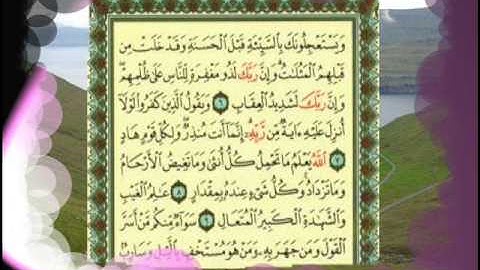 وَيَسْتَعْجِلُونَكَ بِالسَّيِّئَةِ قَبْلَ الْحَسَنَةِ وَقَدْ خَلَتْ مِن
قَبْلِهِمُ الْمَثُلَاتُ وَإِنَّ رَبَّكَ لَذُو مَغْفِرَةٍ لِّلنَّاسِ عَلَى ظُلْمِهِمْ
وَإِنَّ رَبَّكَ لَشَدِيدُ الْعِقَابِ ٦ وَيَقُولُ الَّذِينَ كَفَرُوا لَوْلَا
أُنزِلَ عَلَيْهِ ءَايَةٌ مِّن رَّبِّهِ إِنَّمَا أَنتَ مُنذِرٌ وَلِكُلِّ قَوْمٍ هَادٍ
٧ اللَّهُ يَعْلَمُ مَا تَحْمِلُ كُلُّ أُنثَى وَمَا تَغِيضُ الْأَرْحَامُ
وَمَا تَزْدَادُ وَكُلُّ شَيْءٍ عِندَهُ بِمِقْدَارٍ ٨ عَالِمُ الْغَيْبِ
وَالشَّهَادَةِ الْكَبِيرُ الْمُتَعَالِ ٩ سَوَاءٌ مِّنكُم مَّنْ أَسَرَّ
الْقَوْلَ وَمَن جَهَرَ بِهِ وَمَنْ هُوَ مُسْتَخْفٍ بِاللَّيْلِ وَسَارِبٌ